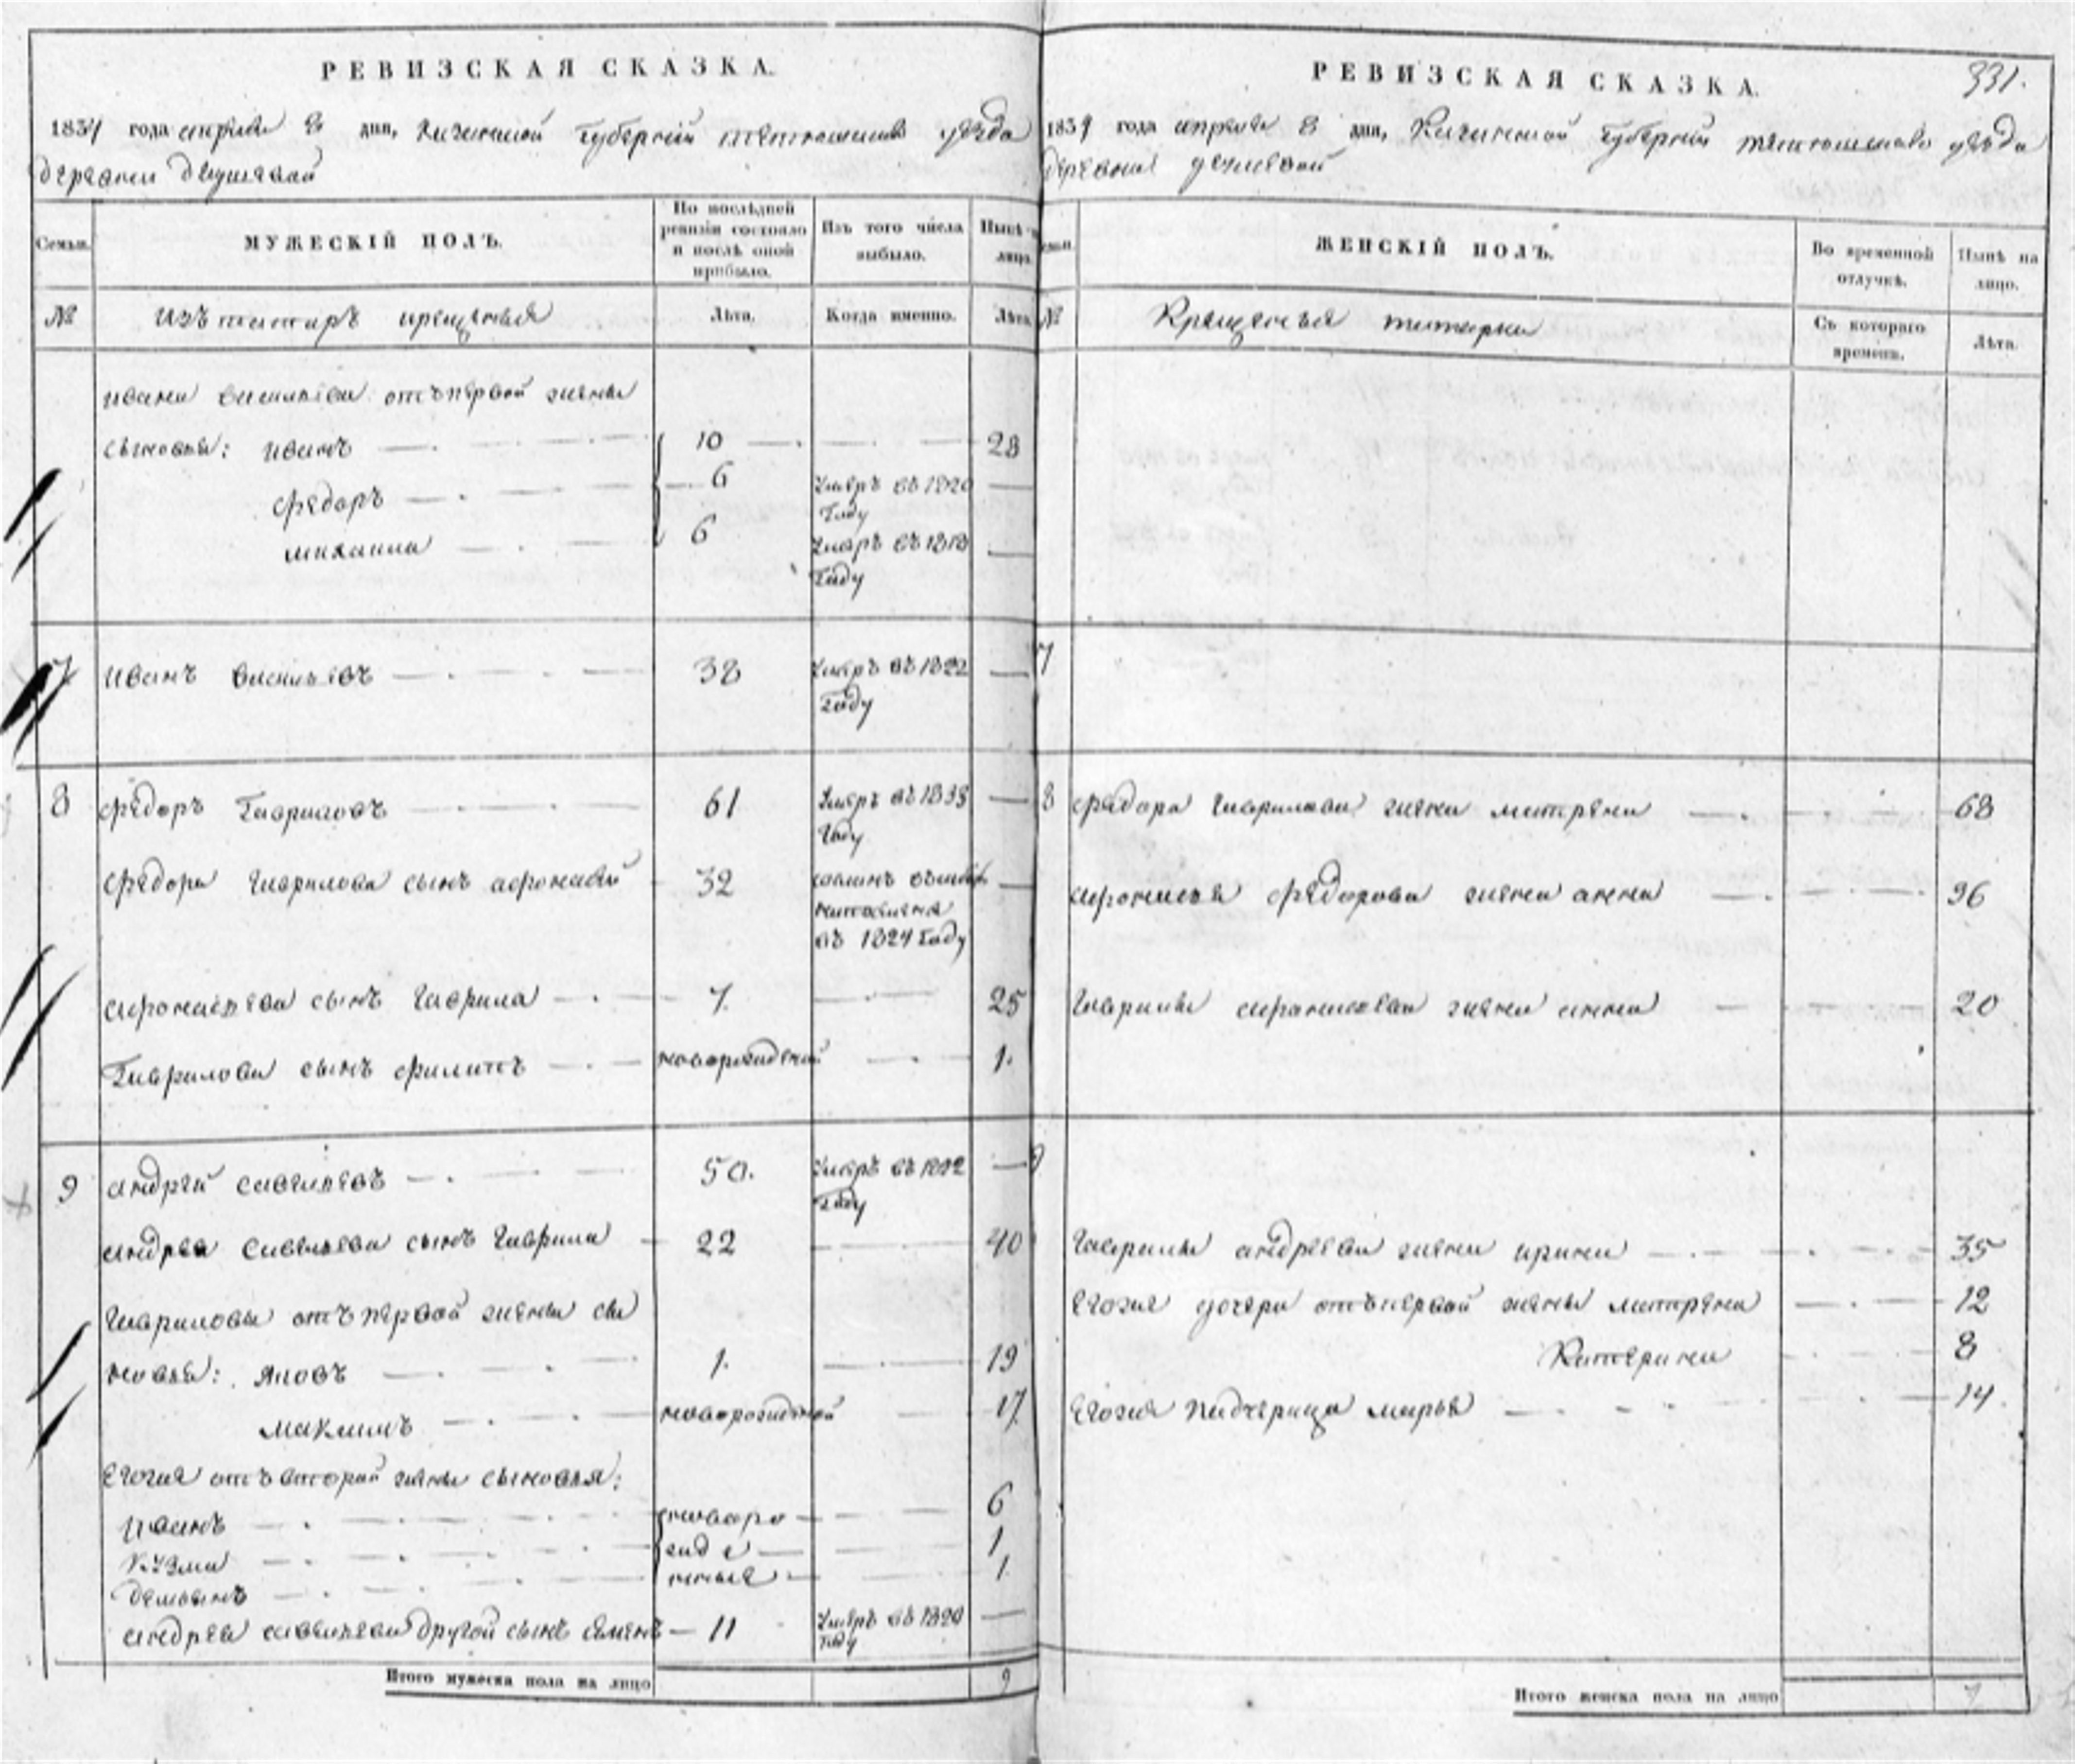 РЕВИЗСКАЯ СКАЗКА.
1834 года апреля 8 дня, Казанской Губернии тетюшскаго уезда
деревни
МУЖЕСКІЙ ПОЛЪ.
Семьи.
По послѣдней ревизіи состояло и послѣ оной прибыло.
Изъ того числа выбыло.
Нынѣ на лицо.
№
Изъ татаръ крещеныя
Лѣта.
Когда именно.
Лѣта.
ивана васильева отъ первой жены
сыновья: иванъ 10 28
Федоръ 6 Умеръ въ 1820 Году
михаила 6 Умеръ въ 1818 Году
7 иванъ васильевъ 38 Умеръ въ 1822 Году
8 Федоръ Гавриловъ 61 Умеръ въ 1833 Году
Федора Гаврилова сынъ афонасей 32 въ 1824 Году
афонасьева сынъ Гаврила 7 25
Гаврилова сынъ филипъ новорожденой 1.
9 андрей савельевъ 50. Умеръ въ 1822 Году
андрея Савельева сынъ Гаврила 22 40
Гавриловы отъ первой жены сы
новья: яковъ 1. 19
максимъ новорожденой 17
Егоже отъ второй жены сыновья:
иванъ новоро 6
Кузма жде 1
демьянъ ныя 1
андрея савельева другой сынъ семенъ 11 Умеръ въ 1820 году
Итого мужеска пола на лицо 9
РЕВИЗСКАЯ СКАЗКА.
331.
1834 года апреля 8 дня, Казанской Губернии тетюшскаго уезда
деревни
ЖЕНСКІЙ ПОЛЪ.
Во временной отлучкѣ.
Нынѣ на лицо.
№
Крещеныя татарки
Съ котораго времени.
Лѣта.
7
8 Федора Гаврилова жена матрена 68
афонасья Федорова жена анна 36
Гаврилы афанасьева жена анна 20
9
Гаврилы андреева жена ирина 35
Егоже дочери отъ первой жены матрена 12
Катерина 8
Егоже падчерица марья 14.
Итого женска пола на лицо 7